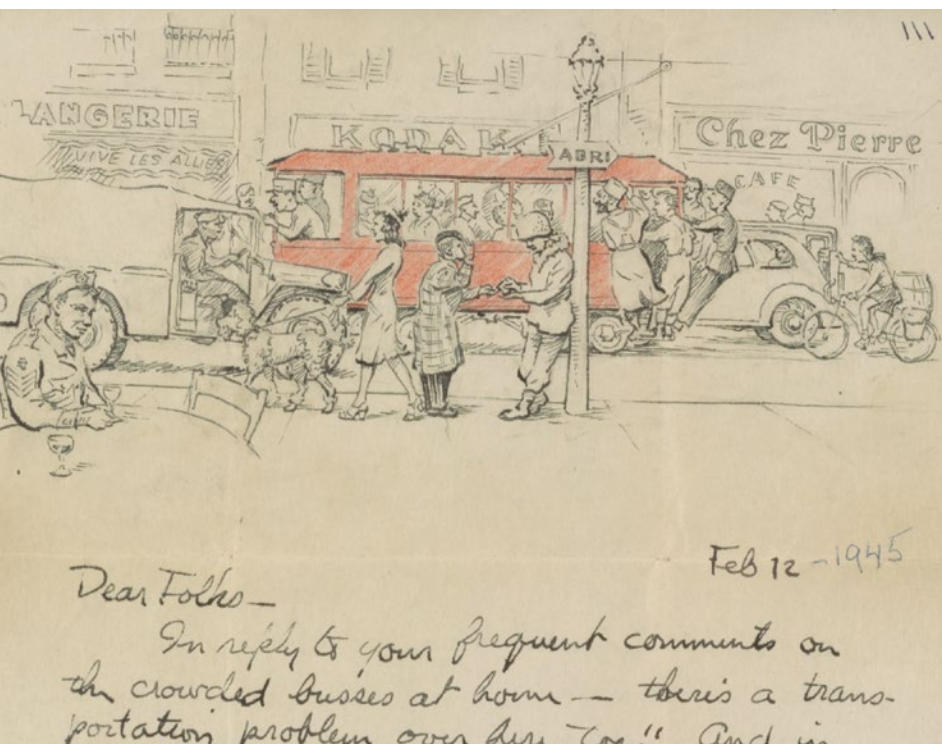 111
LANGERIE
VIVE LES ALLIES
KODAK
ABRI
Chez Pierre
CAFE
Feb 12 - 1945
Dear Folks —
In reply to your frequent comments on
the crowded busses at home — there's a trans-
portation problem over here "too". And in